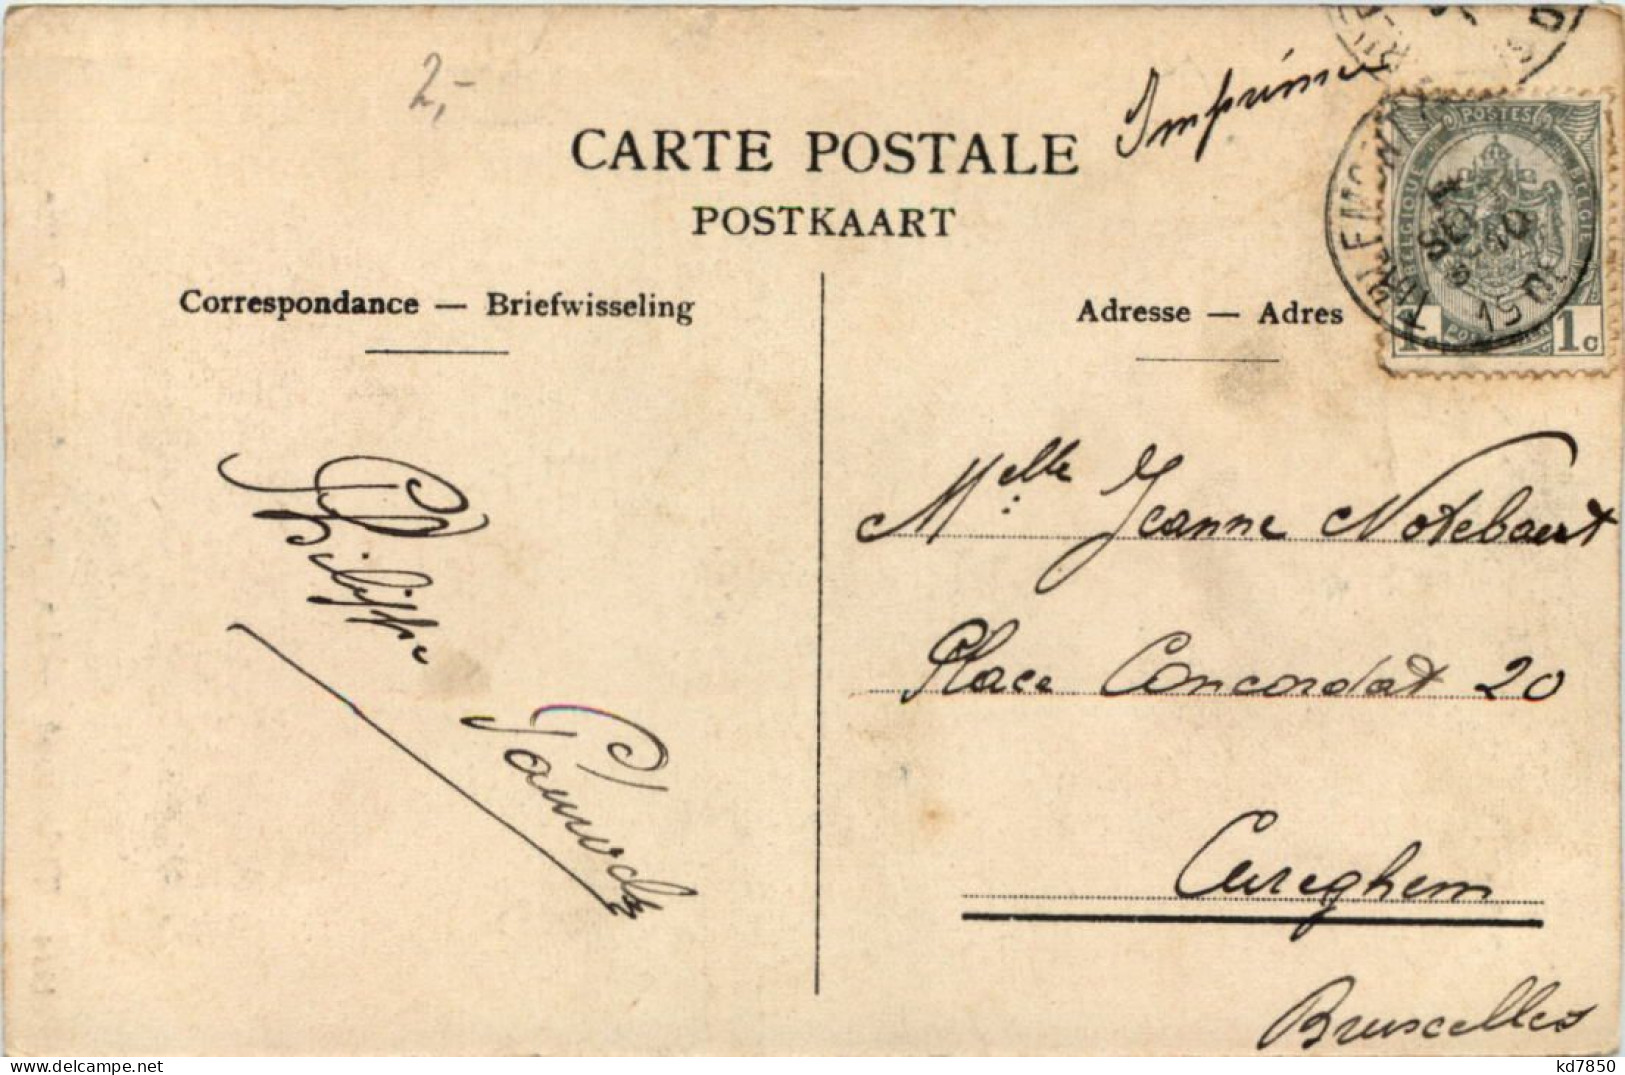 2,-
Imprimé
CARTE POSTALE
POSTKAART
Correspondance — Briefwisseling
Adresse — Adres
POSTES
BELGIQUE BELGIE
1c 1c
TIRLEMONT
SEPT
10
1908
Philippe
Melle Jeanne Notebaert
Place Concordat 20
Cureghem
Bruxelles
delcampe.net
kd7850